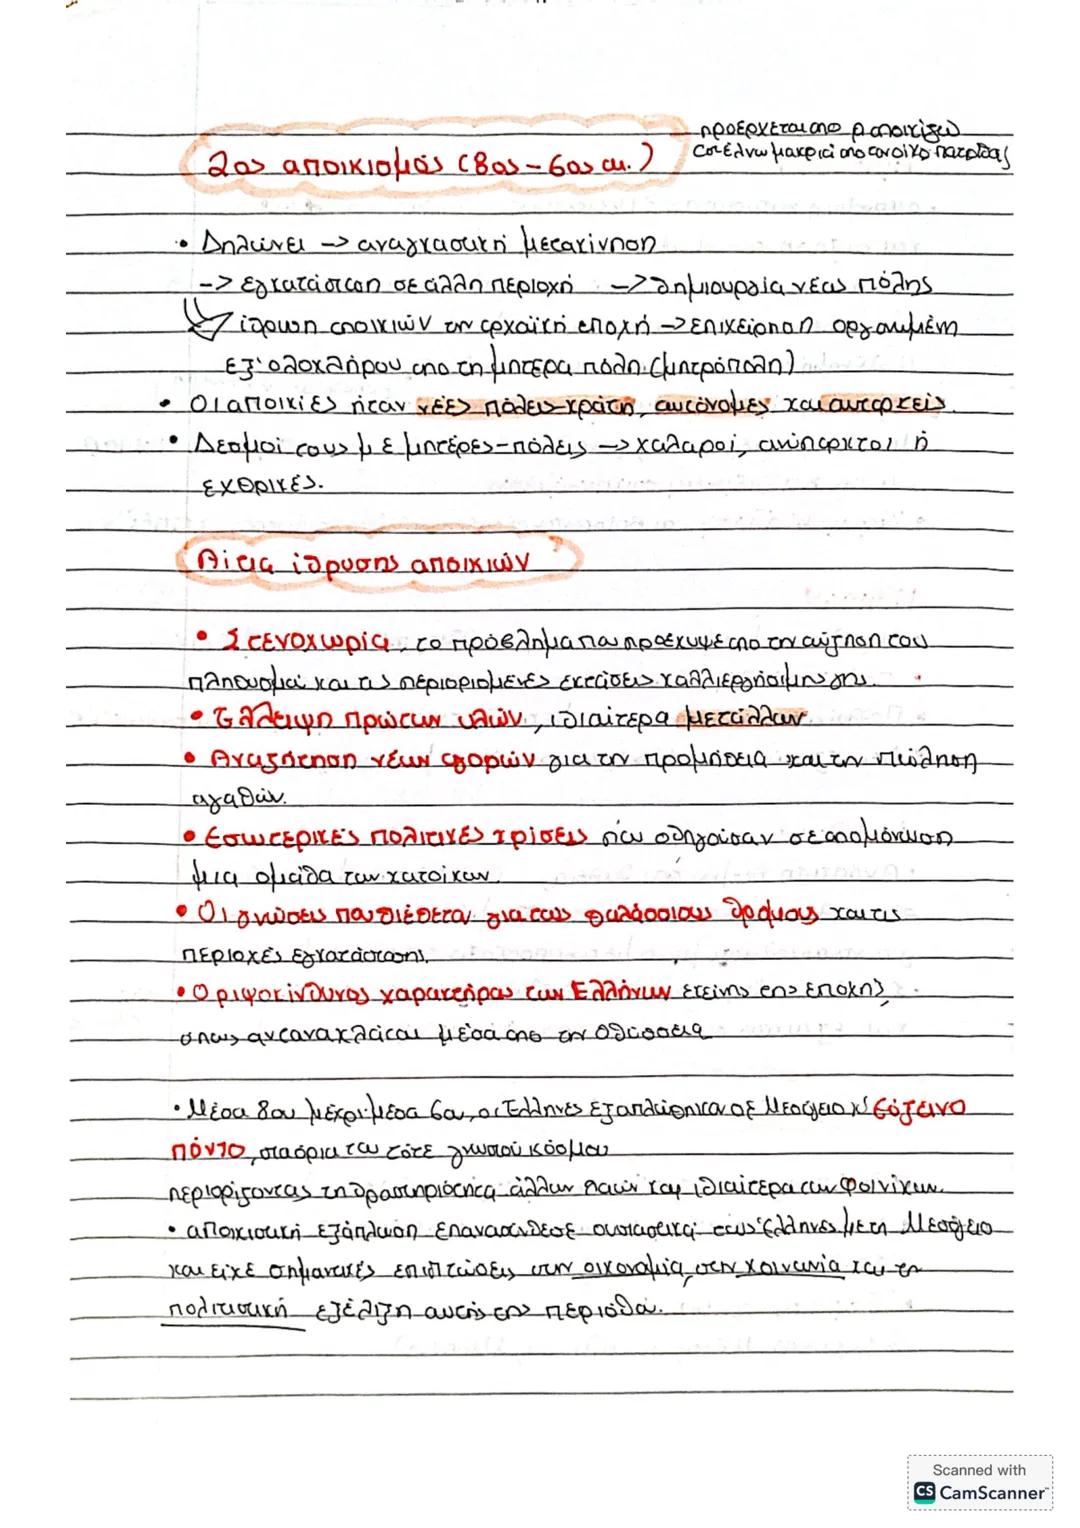 προέρχεται από ρ αποικίζω
2ος αποικισμός (8ος - 6ος αι.)
στέλνω μακριά από τον οίκο-πατρίδας
• Δηλώνει -> αναγκαστική μετακίνηση
-> εγκατάσταση σε άλλη περιοχή -> δημιουργία νέας πόλης
ίδρυση αποικιών την αρχαϊκή εποχή -> επιχείρηση οργανωμένη
εξ' ολοκλήρου από τη μητέρα πόλη (μητρόπολη)
• Οι αποικίες ήταν νέες πόλεις-κράτη, αυτόνομες και αυταρκείς
• Δεσμοί τους με μητέρες-πόλεις -> χαλαροί, ανύπαρκτοι ή
εχθρικές.
Αίτια ίδρυσης αποικιών
• Στενοχωρία, το πρόβλημα που προέκυψε από την αύξηση του
πληθυσμού και τις περιορισμένες εκτάσεις καλλιεργήσιμης γης.
• Έλλειψη πρώτων υλών, ιδιαίτερα μετάλλων
• Αναζήτηση νέων αγορών για την προμήθεια και την πώληση
αγαθών.
• Εσωτερικές πολιτικές κρίσεις που οδηγούσαν σε απομόνωση
μια ομάδα των κατοίκων.
• Οι γνώσεις που διέθεταν για τους θαλάσσιους δρόμους και τις
περιοχές εγκατάστασης.
• Ο ριψοκίνδυνος χαρακτήρας των Ελλήνων εκείνης της εποχής,
όπως αντανακλάται μέσα από την Οδύσσεια
• Μέσα 8ου μέχρι μέσα 6ου, οι Έλληνες εξαπλώθηκαν σε Μεσόγειο κ' Εύξεινο
πόντο, στα όρια του τότε γνωστού κόσμου
περιορίζοντας τη δραστηριότητα άλλων λαών και ιδιαίτερα των Φοινίκων.
• αποικιστική εξάπλωση επανασύνδεσε ουσιαστικά τους Έλληνες με τη Μεσόγειο
και είχε σημαντικές επιπτώσεις στην οικονομία, στην κοινωνία και τη
πολιτιστική εξέλιξη αυτής της περιόδου.
Scanned with
CS CamScanner